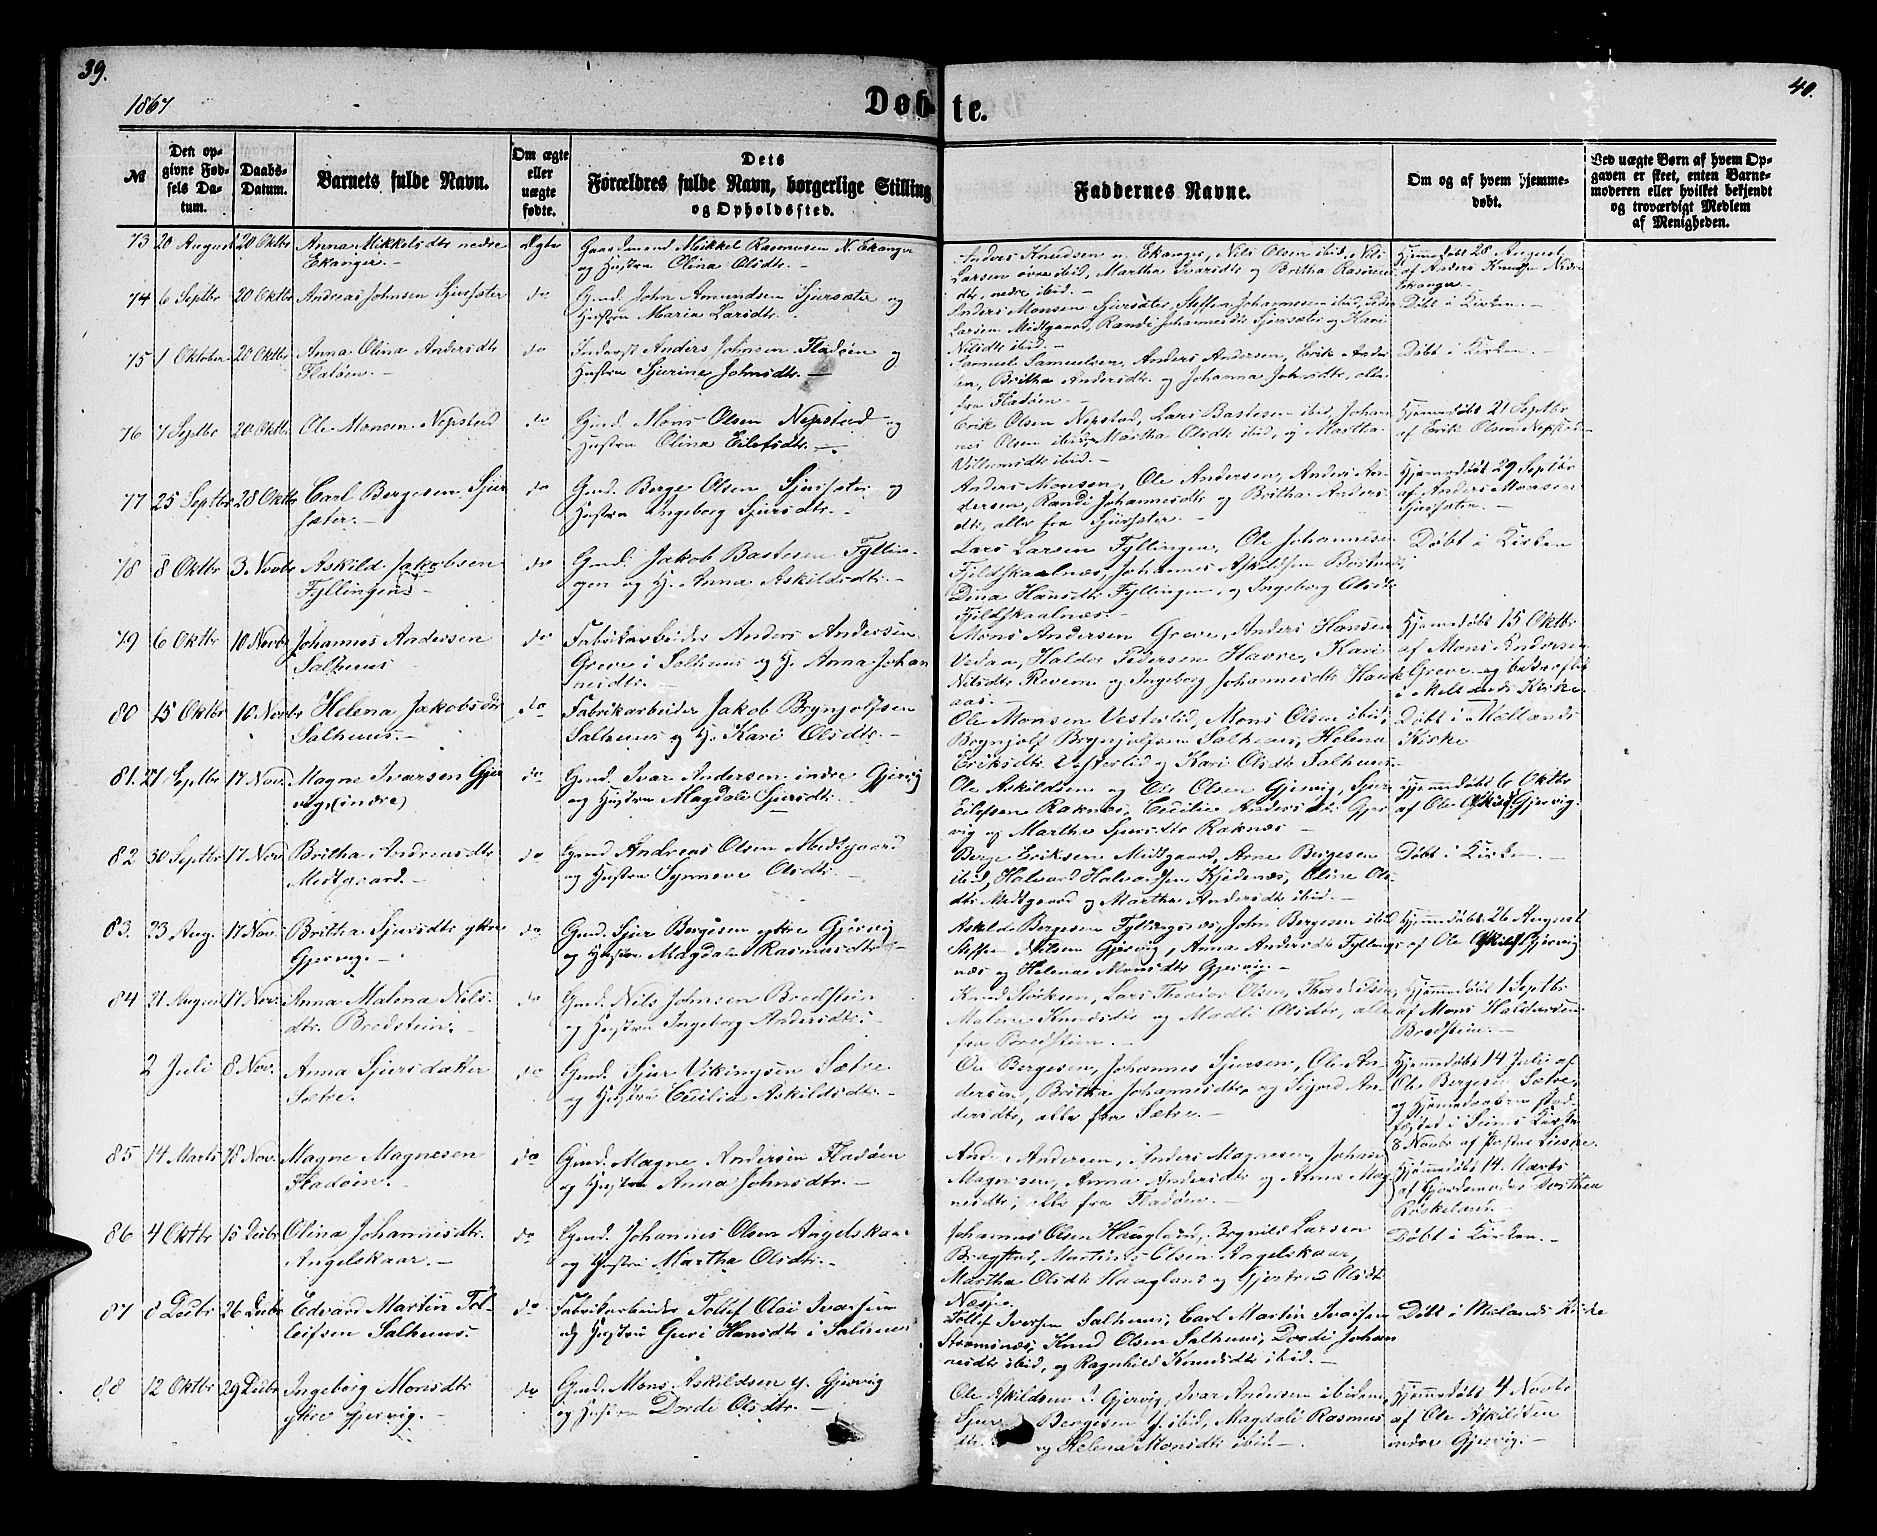 39.
40.
1867
Døbte.
№
Den op-
givne Fød-
sels Da-
tum.
Daabs-
Datum.
Barnets fulde Navn.
Om ægte
eller
uægte
fødte.
Dets
Forældres fulde Navn, borgerlige Stilling
og Opholdssted.
Faddernes Navne.
Om og af hvem hjemme-
døbt.
Ved uægte Børn af hvem Op-
gaven er skeet, enten Barne-
moderen eller hvilket bekjendt
og troværdigt Medlem
af Menigheden.
73 20 August 20 Oktbr Anna Mikkelsdtr nedre
Ekanger.-
Ægte
Gaardmand Mikkel Rasmusen N. Ekanger
og Hustru Olina Olsdtr.-
Anders Knudsen n. Ekanger, Nils Olsen ibid, Nils
Larsen øvre ibid, Martha Ivarsdtr og Britha Rasmus
dtr, nedre ibid.-
Hjemdøbt 28 August
af Anders Knudsen Nedre
Ekanger.-
74 6 Septbr 20 Oktbr Andreas Johnsen Sjursæter
do
Gmd. John Amundsen Sjursæter og
Hustru Maria Larsdtr.
Anders Monsen Sjursæter, Steffen Johannesen ibid, Peder
Larsen Midtgaard, Randi Johannesdtr Sjursæter og Kari
Nilsdtr ibid.-
Døbt i Kirken.-
75 1 Oktober 20 Oktbr Anna Olina Andersdtr
Fladøen.-
do
Inderst Anders Johnsen Fladøen og
Hustru Sjurine Johnsdtr.-
Samuel Samuelsen, Anders Andersen, Erik Ander
sen, Britha Andersdtr og Johanna Johnsdtr, alle
fra Fladøen.-
Døbt i Kirken.-
76 7 Septbr 20 Oktbr Ole Monsen Nepstad
do
Gmd. Mons Olsen Nepstad og
Hustru Olina Eilefsdtr.-
Erik Olsen Nepstad, Lars Bastesen ibid, Johan
nes Olsen ibid, Martha Olsdtr ibid, og Martha
Villumsdtr ibid.-
Hjemmedøbt 21 Septbr
af Erik Olsen Nepstad
77 25 Septbr 28 Oktbr Carl Bergesen Sjur
sæter.-
do
Gmd. Berge Olsen Sjursæter og
Hustru Ingeborg Sjursdtr.-
Anders Monsen, Ole Andersen, Anders An-
dersen, Randi Johannesdtr og Britha Anders
dtr, alle fra Sjursæter.-
Hjemmedøbt 29 Septbr
af Anders Monsen
Sjursæter.-
78 8 Oktbr 3 Novbr Askild Jakobsen
Fyllingen.-
do
Gmd. Jakob Bastesen Fyllin-
gen og H. Anna Askildsdtr.-
Lars Larsen Fyllingen, Ole Johannesen
Fjeldskaalnæs, Johannes Askildsen
Dina Hansdtr Fyllingen, og Ingeborg Olsdtr
Fjeldskaalnæs.-
Døbt i Kirken
79 6 Oktbr 10 Novbr Johannes Andersen
Salhuus
do
Fabrikarbeider Anders Andersen
Greve i Salhuus og H. Anna Johan
nesdtr.-
Mons Andersen Greve, Anders Hansen
Vedaa, Haldor Pedersen Havre, Kari
Nilsdtr Revem og Ingeborg Johannesdtr Hau
aas.-
Hjemdøbt 15 Oktbr
af Mons Andersen
Greve og
i Mellands Kirke
80 15 Oktbr 10 Novbr Helena Jakobsdtr
Salhuus.-
do
Fabrikarbeider Jakob Brynjolfsen
Salhuus og H. Kari Olsdtr.-
Ole Monsen Vesterlid, Mons Olsen ibid,
Brynjolf Brynjolfsen Salhuus, Helena
Eriksdtr Vesterlid og Kari Olsdtr Salhuus.
Døbt i Mellands
Kirke
81. 27 Septbr 17 Nov. Magne Ivarsen Gjer
vig (indre)
do
Gmd. Ivar Andersen indre Gjervig
og Hustru Magdali Sjursdtr.
Ole Askildsen og Ole Olsen Gjervig, Sjur
Eilefsen Raknes, Cecilia Andersdtr Gjer
vig og Martha Sjursdtr Raknæs -
Hjemmedøbt 6 Oktbr
af Ole Askilds. Gjervig.
82 30 Septbr 17 Nov Britha Andreasdtr
Midtgaard.-
do
Gmd. Andreas Olsen Midtgaard
og Hustru Synneve Olsdtr.
Berge Eriksen Midtgaard, Arne Bergesen
ibid, Halvard Halvardsen Kjedenæs, Oline Ols
dtr Midtgaard og Martha Andersdtr ibid.-
Døbt i Kirken.-
83. 23 Aug. 17 Nov. Britha Sjursdtr ytre
Gjervig.-
do
Gmd. Sjur Bergesen ytre Gjervig
og Hustru Magdala Rasmusdtr.-
Askild Bergesen Fyllingsnæs, John Bergesen ibid,
Steffen Nilsen Gjervig, Anna Andersdtr Fyllings
næs og Helenae Monsdtr Gjervig.-
Hjemmedøbt 26 August
af Ole Askilds. Gjervig
84 31 August 17 Nov. Anna Malena Nils-
dtr. Bredstein.
do
Gmd. Nils Johnsen Bredstein
og Hustru Ingeborg Andersdtr.-
Knud Størksen, Lars Olsen,
Malene Knudsdtr og Madli Olsdtr, alle
fra Bredstein.-
Hjemmedøbt 1 Septbr
af Mons Halstensen
Bredstein.-
2 Juli 8 Nov. Anna Sjursdatter
Sætre.
do
Gmd. Sjur Vikingsen Sætre
og Hustru Cecilia Askildsdtr.-
Ole Bergesen, Johannes Sjursen, Ole An-
dersen, Britha Johannesdtr og Sigrid An-
dersdtr, alle fra Sætre.-
Hjemmedøbt 14 Juli af
Ole Bergesen Sætre,
og Hjemmedaaben stad-
fæstet i Seims Kirke
8 Novbr af Pastor
85 14 Marts 18 Nov. Magne Magnesen
Fladøen.
do
Gmd. Magne Andersen Fladøen
og Hustru Anna Johnsdtr.-
Anders Andersen, Anders Magnesen, Johan
Magnesen, Anna Andersdtr og Anna Mag
nesdtr, alle fra Fladøen.-
Hjemmedøbt 14. Marts
af Gjordemoder Dorthea
Roskeland.-
86 4 Oktbr 15 Decbr Olina Johannesdtr.
Angelskaar.-
do
Gmd. Johannes Olsen Angelskaar
og Hustru Martha Olsdtr.-
Johannes Olsen Haugland, Larsen
Bragstad, Martinus Olsen Angelskaar,
Martha Olsdtr Haugland og Gjertrud Olsdt
Næsse.
Døbt i Kirken.-
87 8 Decbr 26 Decbr Edvard Martin Tol-
leifsen Salhuus.
do
Fabrikarbeider Tollef Olai Ivarsen
og Hustru Guri Hansdtr i Salhuus
Tollef Iversen Salhuus, Carl Martin Ivarsen
Stormsnæs, Knud Olsen Salhuus, Dordi Johan
nesdtr ibid, og Ragnhild Knudsdtr ibid.-
Døbt i Mælands Kirke
88 12 Oktbr 29 Decbr Ingeborg Monsdtr
ytre Gjervig.-
do
Gmd. Mons Askildsen y. Gjervig
og Hustru Dordi Olsdtr.-
Ole Askildsen I. Gjervig, Ivar Andersen ibidem,
Sjur Bergesen Y. ibid, Magdali Rasmus
dtr og Helena Monsdtr ibid.-
Hjemmedøbt 4 Novbr
af Ole Askildsen
indre Gjervig.-